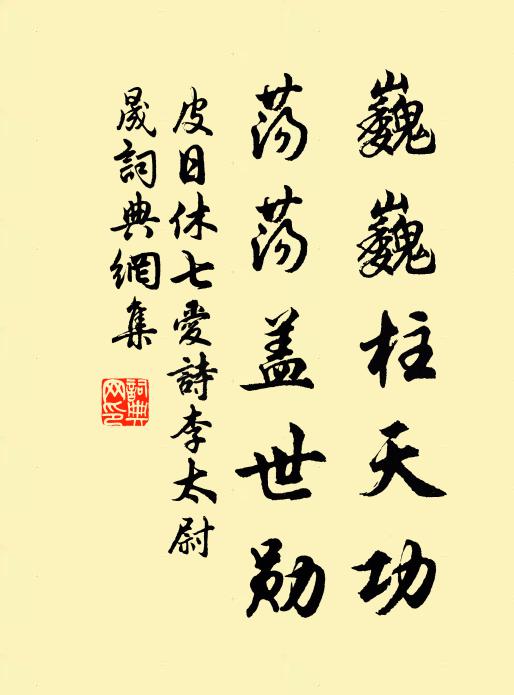 巍巍柱天功
荡荡盖世勋
皮日休七愛詩李太尉
晟詞典網集
詞典网印